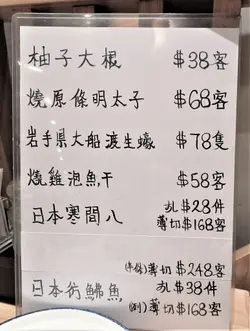 柚子大根 $38客
燒原條明太子 $68客
岩手県大船渡生蠔 $78隻
燒雞泡魚干 $58客
日本寒間八 扎$28件
薄切$168客
薄切$248客
日本 鯡魚 扎$38件
薄切$168客